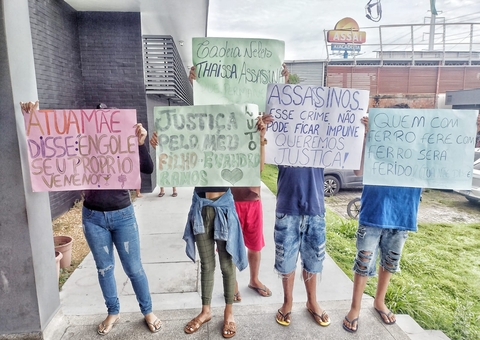 Cadeia Neles
THAÍSSA ASSASINA
ASSAÍ
ATUA MÃE
DISSE: ENGOLE
SEU PRÓPRIO
VENENO?
JUSTIÇA
PELO MEU
FILHO EVANDRO
RAMOS
ASSASINOS.
ESSE CRIME NÃO
PODE FICAR IMPUNE
QUEREMOS
JUSTIÇA!
QUEM COM
FERRO FERE COM
FERRO SERÁ
FERIDO